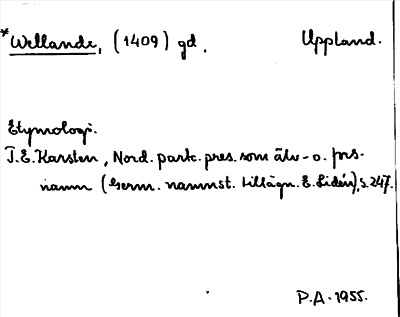 *Wellande, (1409) gd, Uppland.
Etymologi.
T.E. Karsten, Nord. partc. pres. som älv- o. ors-
namn (Germ. namnst. tillägn. E. Lidén), s. 247.
P.A. 1955.